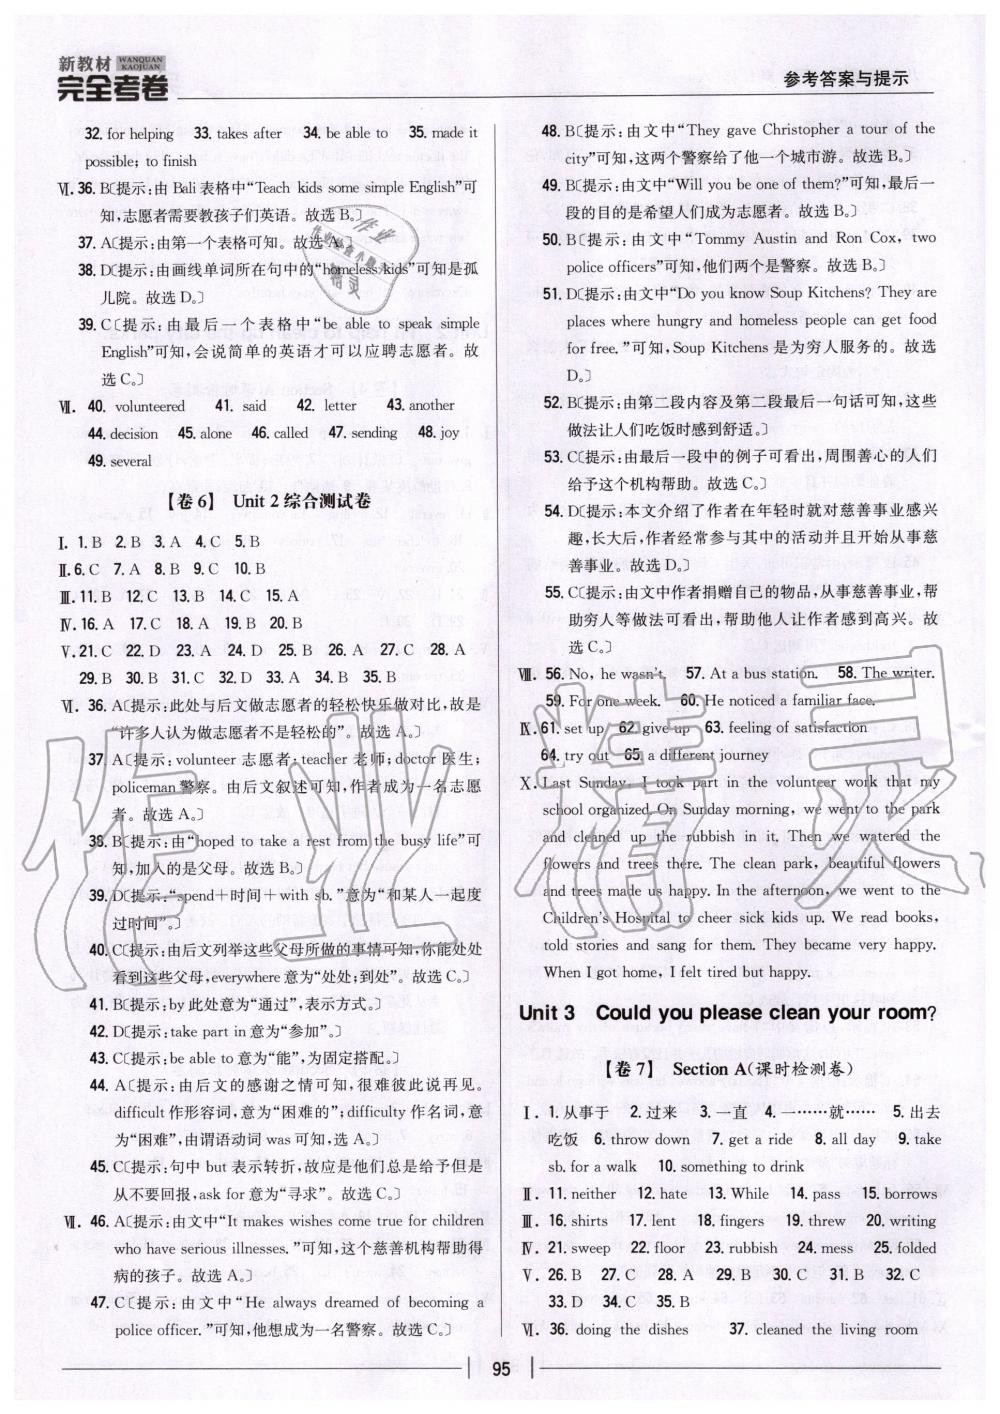 新教材 WANQUAN KAOJUAN
完全考卷
参考答案与提示
32. for helping 33. takes after 34. be able to 35. made it
possible; to finish
Ⅵ. 36. B〔提示:由 Bali 表格中“Teach kids some simple English”可
知,志愿者需要教孩子们英语。故选 B。〕
37. A〔提示:由第一个表格可知。故选 A。〕
38. D〔提示:由画线单词所在句中的“homeless kids”可知是孤
儿院。故选 D。〕
39. C〔提示:由最后一个表格中“be able to speak simple
English”可知,会说简单的英语才可以应聘志愿者。故
选 C。〕
Ⅶ. 40. volunteered 41. said 42. letter 43. another
44. decision 45. alone 46. called 47. sending 48. joy
49. several
【卷 6】 Unit 2 综合测试卷
Ⅰ. 1. B 2. B 3. A 4. C 5. B
Ⅱ. 6. C 7. A 8. B 9. C 10. B
Ⅲ. 11. B 12. C 13. B 14. C 15. A
Ⅳ. 16. A 17. C 18. A 19. B 20. B
Ⅴ. 21. C 22. D 23. A 24. D 25. B 26. A 27. C 28. A
29. B 30. B 31. C 32. D 33. A 34. B 35. B
Ⅵ. 36. A〔提示:此处与后文做志愿者的轻松快乐做对比,故是
“许多人认为做志愿者不是轻松的”。故选 A。〕
37. A〔提示:volunteer 志愿者;teacher 老师;doctor 医生;
policeman 警察。由后文叙述可知,作者成为一名志愿
者。故选 A。〕
38. B〔提示:由“hoped to take a rest from the busy life”可
知,加入的是父母。故选 B。〕
39. D〔提示:“spend+时间+with sb. ”意为“和某人一起度
过时间”。〕
40. C〔提示:由后文列举这些父母所做的事情可知,你能处处
看到这些父母,everywhere 意为“处处;到处”。故选 C。〕
41. B〔提示:by 此处意为“通过”,表示方式。〕
42. D〔提示:take part in 意为“参加”。〕
43. C〔提示:be able to 意为“能”,为固定搭配。〕
44. D〔提示:由后文的感谢之情可知,很难彼此说再见。
difficult 作形容词,意为“困难的”;difficulty 作名词,意
为“困难”,由谓语动词 was 可知,选 A。〕
45. C〔提示:句中 but 表示转折,故应是他们总是给予但是
从不要回报,ask for 意为“寻求”。故选 C。〕
Ⅶ. 46. A〔提示:由文中“It makes wishes come true for children
who have serious illnesses. ”可知,这个慈善机构帮助得
病的孩子。故选 A。〕
47. C〔提示:由文中“He always dreamed of becoming a
police officer. ”可知,他想成为一名警察。故选 C。〕
48. B〔提示:由文中“They gave Christopher a tour of the
city”可知,这两个警察给了他一个城市游。故选 B。〕
49. B〔提示:由文中“Will you be one of them?”可知,最后一
段的目的是希望人们成为志愿者。故选 B。〕
50. B〔提示:由文中“Tommy Austin and Ron Cox, two
police officers”可知,他们两个是警察。故选 B。〕
51. D〔提示:由文中“Do you know Soup Kitchens? They are
places where hungry and homeless people can get food
for free. ”可知,Soup Kitchens 是为穷人服务的。故选
D。〕
52. B〔提示:由第二段内容及第二段最后一句话可知,这些
做法让人们吃饭时感到舒适。〕
53. C〔提示:由最后一段中的例子可看出,周围善心的人们
给予这个机构帮助。故选 C。〕
54. D〔提示:本文介绍了作者在年轻时就对慈善事业感兴
趣,长大后,作者经常参与其中的活动并且开始从事慈
善事业。故选 D。〕
55. C〔提示:由文中作者捐赠自己的物品,从事慈善事业,帮
助穷人等做法可看出,帮助他人让作者感到高兴。故
选 C。〕
Ⅷ. 56. No, he wasn't. 57. At a bus station. 58. The writer.
59. For one week. 60. He noticed a familiar face.
Ⅸ. 61. set up 62. give up 63. feeling of satisfaction
64. try out 65. a different journey
Ⅹ. Last Sunday, I took part in the volunteer work that my
school organized. On Sunday morning, we went to the park
and cleaned up the rubbish in it. Then we watered the
flowers and trees there. The clean park, beautiful flowers
and trees made us happy. In the afternoon, we went to the
Children's Hospital to cheer sick kids up. We read books,
told stories and sang for them. They became very happy.
When I got home, I felt tired but happy.
Unit 3 Could you please clean your room?
【卷 7】 Section A(课时检测卷)
Ⅰ. 1. 从事于 2. 过来 3. 一直 4. 一……就…… 5. 出去
吃饭 6. throw down 7. get a ride 8. all day 9. take
sb. for a walk 10. something to drink
Ⅱ. 11. neither 12. hate 13. While 14. pass 15. borrows
Ⅲ. 16. shirts 17. lent 18. fingers 19. threw 20. writing
Ⅳ. 21. sweep 22. floor 23. rubbish 24. mess 25. folded
Ⅴ. 26. B 27. C 28. A 29. B 30. C 31. B 32. C
33. D 34. C 35. B
Ⅵ. 36. doing the dishes 37. cleaned the living room
95
作业精灵